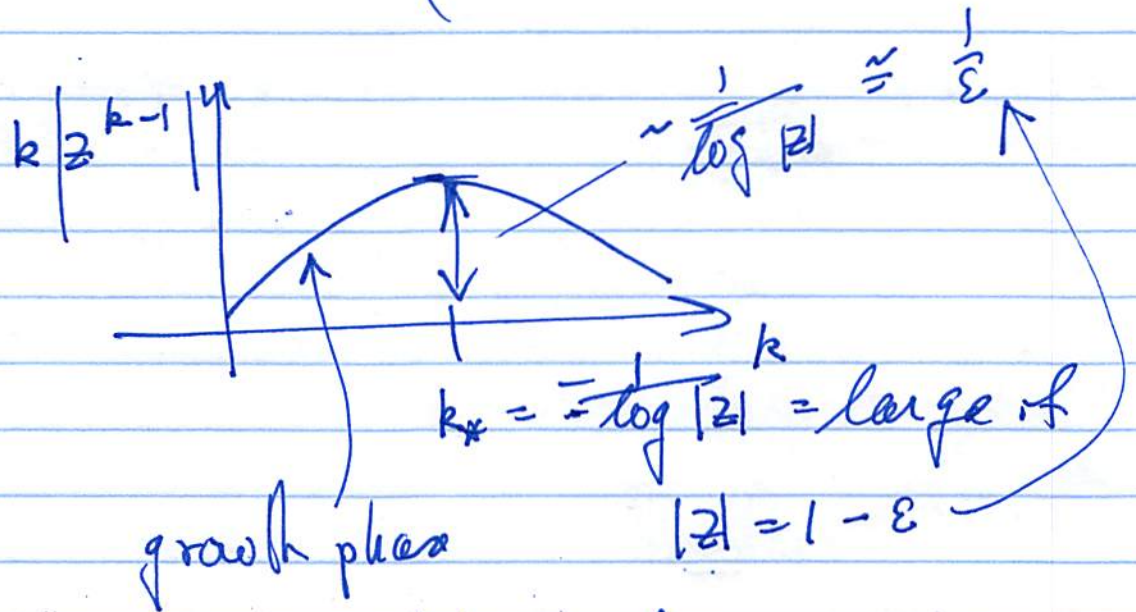 k|z^{k-1}|
~ 1/log |z| ≅ 1/ε
k
k_* = -1/log |z| = large if
|z| = 1 - ε
growth phase